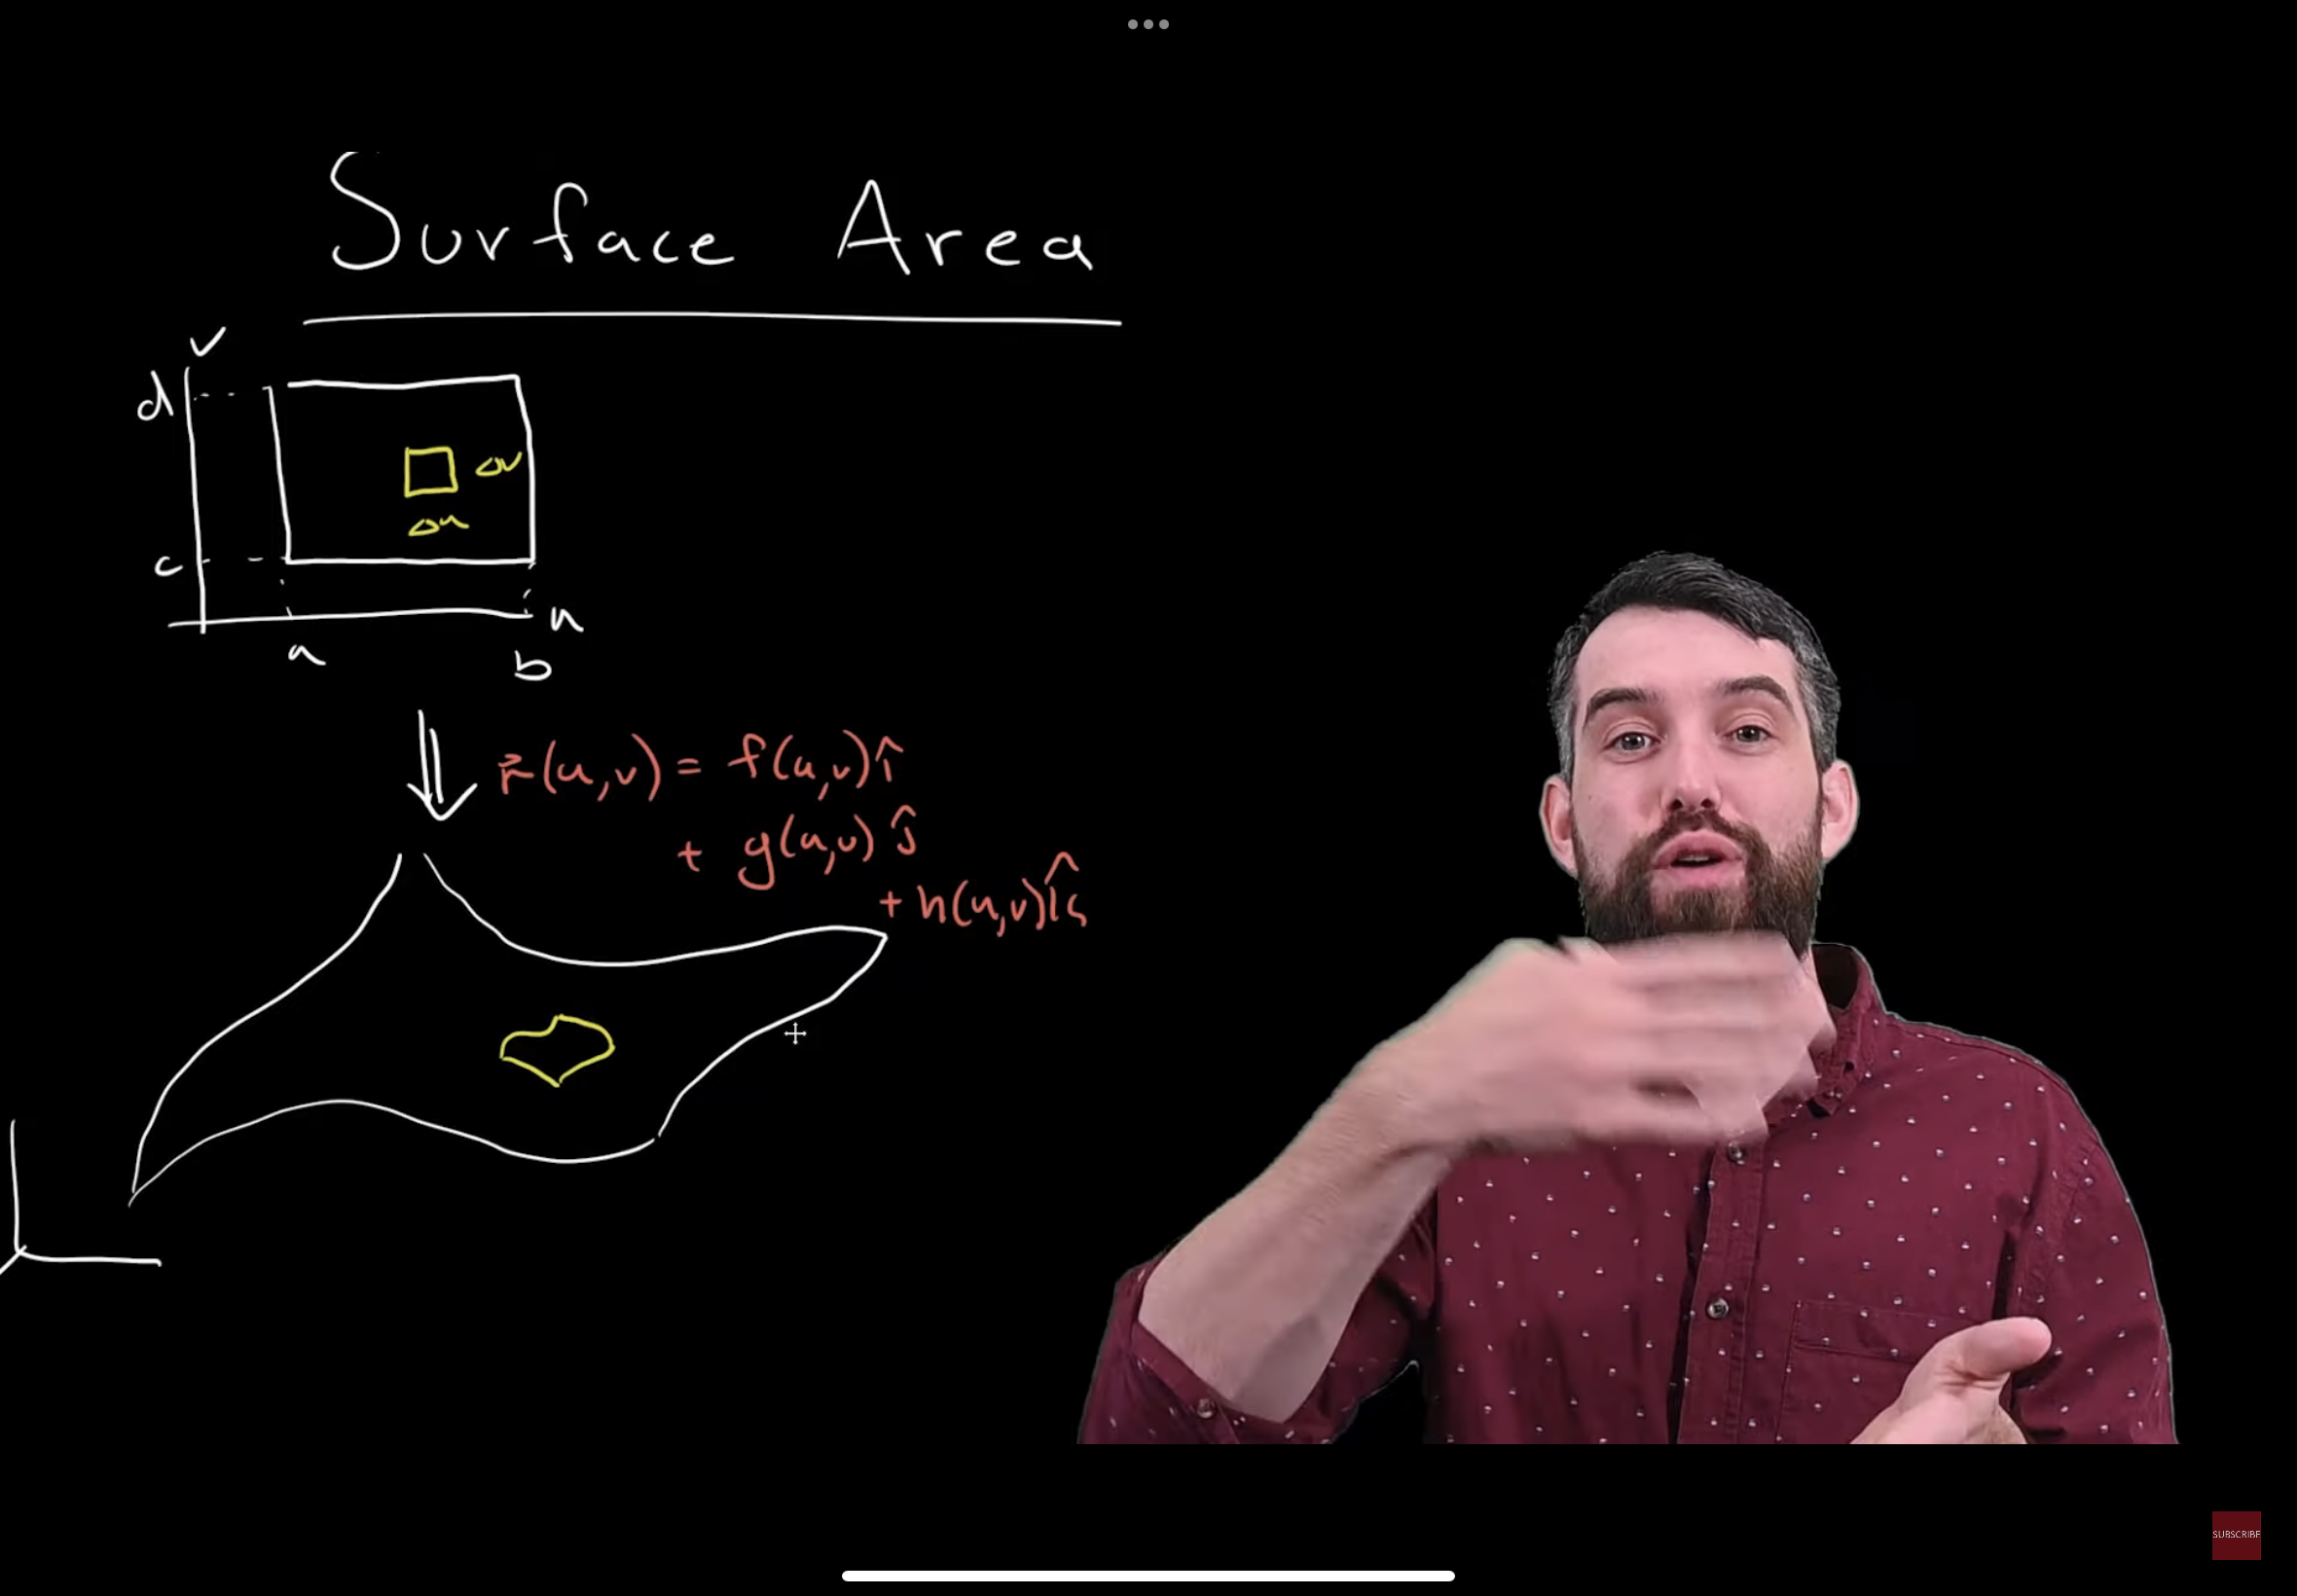 Surface Area
v
d
Δv
Δu
c
u
a
b
r⃗(u,v) = f(u,v)î
+ g(u,v) ĵ
+ h(u,v)k̂
SUBSCRIBE